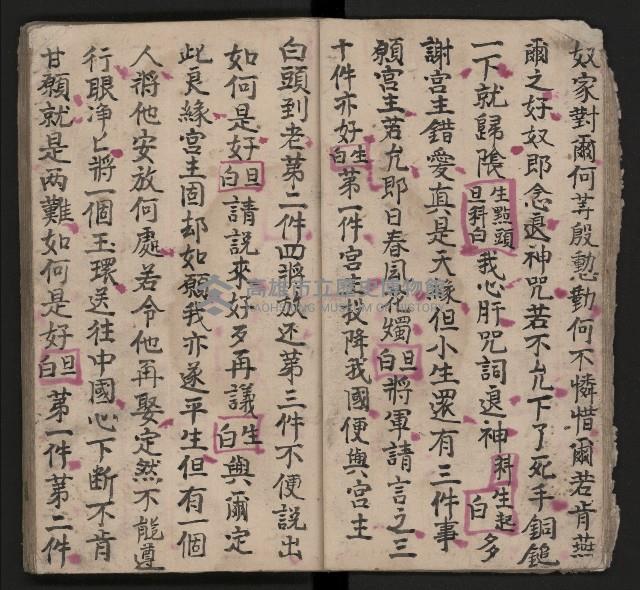 奴家對爾何等殷懃勤何不憐惜爾若肯燕
爾之好奴即念退神咒若不允下了死手銅鎚
一下就歸陰生點頭旦科白我心肝咒詞退神科生起白多
謝宮主錯愛真是天緣但小生還有三件事
願宮主若允即日春風花燭旦白將軍請言之三
十件亦好生白第一件宮主投降我國便與宮主
白頭到老第二件四將放还第三件不便說出
如何是好旦白請說來好歹再議生白與爾定
此良緣宮主固却如願我亦遂平生但有一個
人將他安放何處若令他再娶定然不能遵
行眼淨匕將一個玉環送往中國心下斷不肯
甘願就是两難如何是好旦白第一件第二件
高雄市立歷史博物館
KAOHSIUNG MUSEUM OF HISTORY